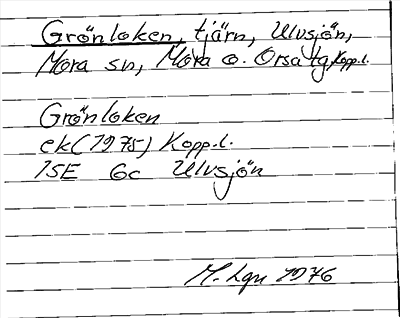 Grönloken, tjärn, Ulvsjön,
Mora sn, Mora o. Orsa tg Kopp.l.
Grönloken
ek (1975) Kopp.l.
15E 6c Ulvsjön
M. Lgn 1976